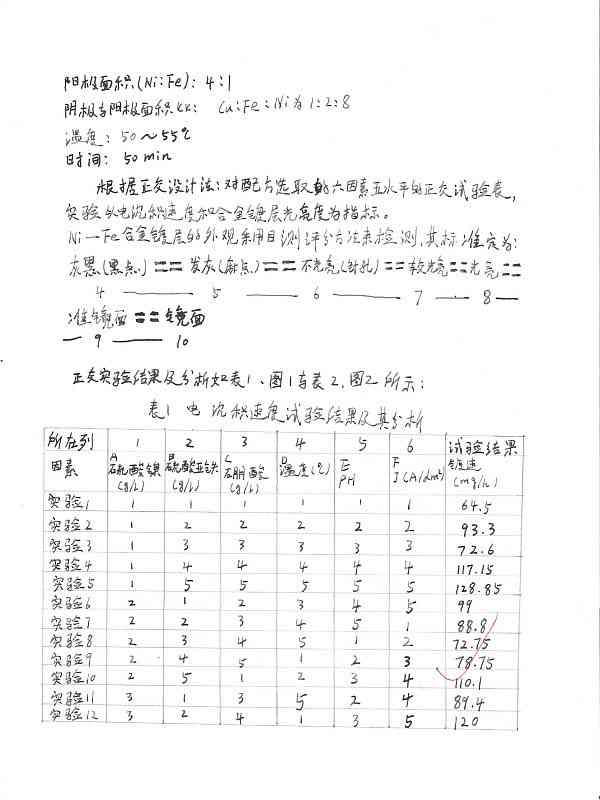 阳极面积(Ni:Fe): 4:1
阴极与阳极面积比: Cu:Fe:Ni为1:2:8
温度: 50～55℃
时间: 50 min
根据正交设计法:对配方选取的六因素五水平的正交试验表,
实验以电沉积速度和合金镀层光亮度为指标。
Ni—Fe合金镀层的外观采用目测评分方法来检测,其标准定为:
灰黑(黑点) == 发灰(麻点) == 不光亮(针孔) == 较光亮 == 光亮 ==
4 —— 5 —— 6 —— 7 — 8 —
准镜面 == 镜面
— 9 —— 10
正交实验结果及分析如表1、图1与表2、图2所示:
表1 电沉积速度试验结果及其分析
所在列 1 2 3 4 5 6 试验结果
因素 A硫酸镍(g/L) B硫酸亚铁(g/L) C硼酸(g/L) D温度(℃) E PH F J(A/dm²) 镀速(mg/h)
实验1 1 1 1 1 1 1 64.5
实验2 1 2 2 2 2 2 93.3
实验3 1 3 3 3 3 3 72.6
实验4 1 4 4 4 4 4 117.15
实验5 1 5 5 5 5 5 128.85
实验6 2 1 2 3 4 5 99
实验7 2 2 3 4 5 1 88.8
实验8 2 3 4 5 1 2 72.75
实验9 2 4 5 1 2 3 78.75
实验10 2 5 1 2 3 4 110.1
实验11 3 1 3 5 2 4 89.4
实验12 3 2 4 1 3 5 120